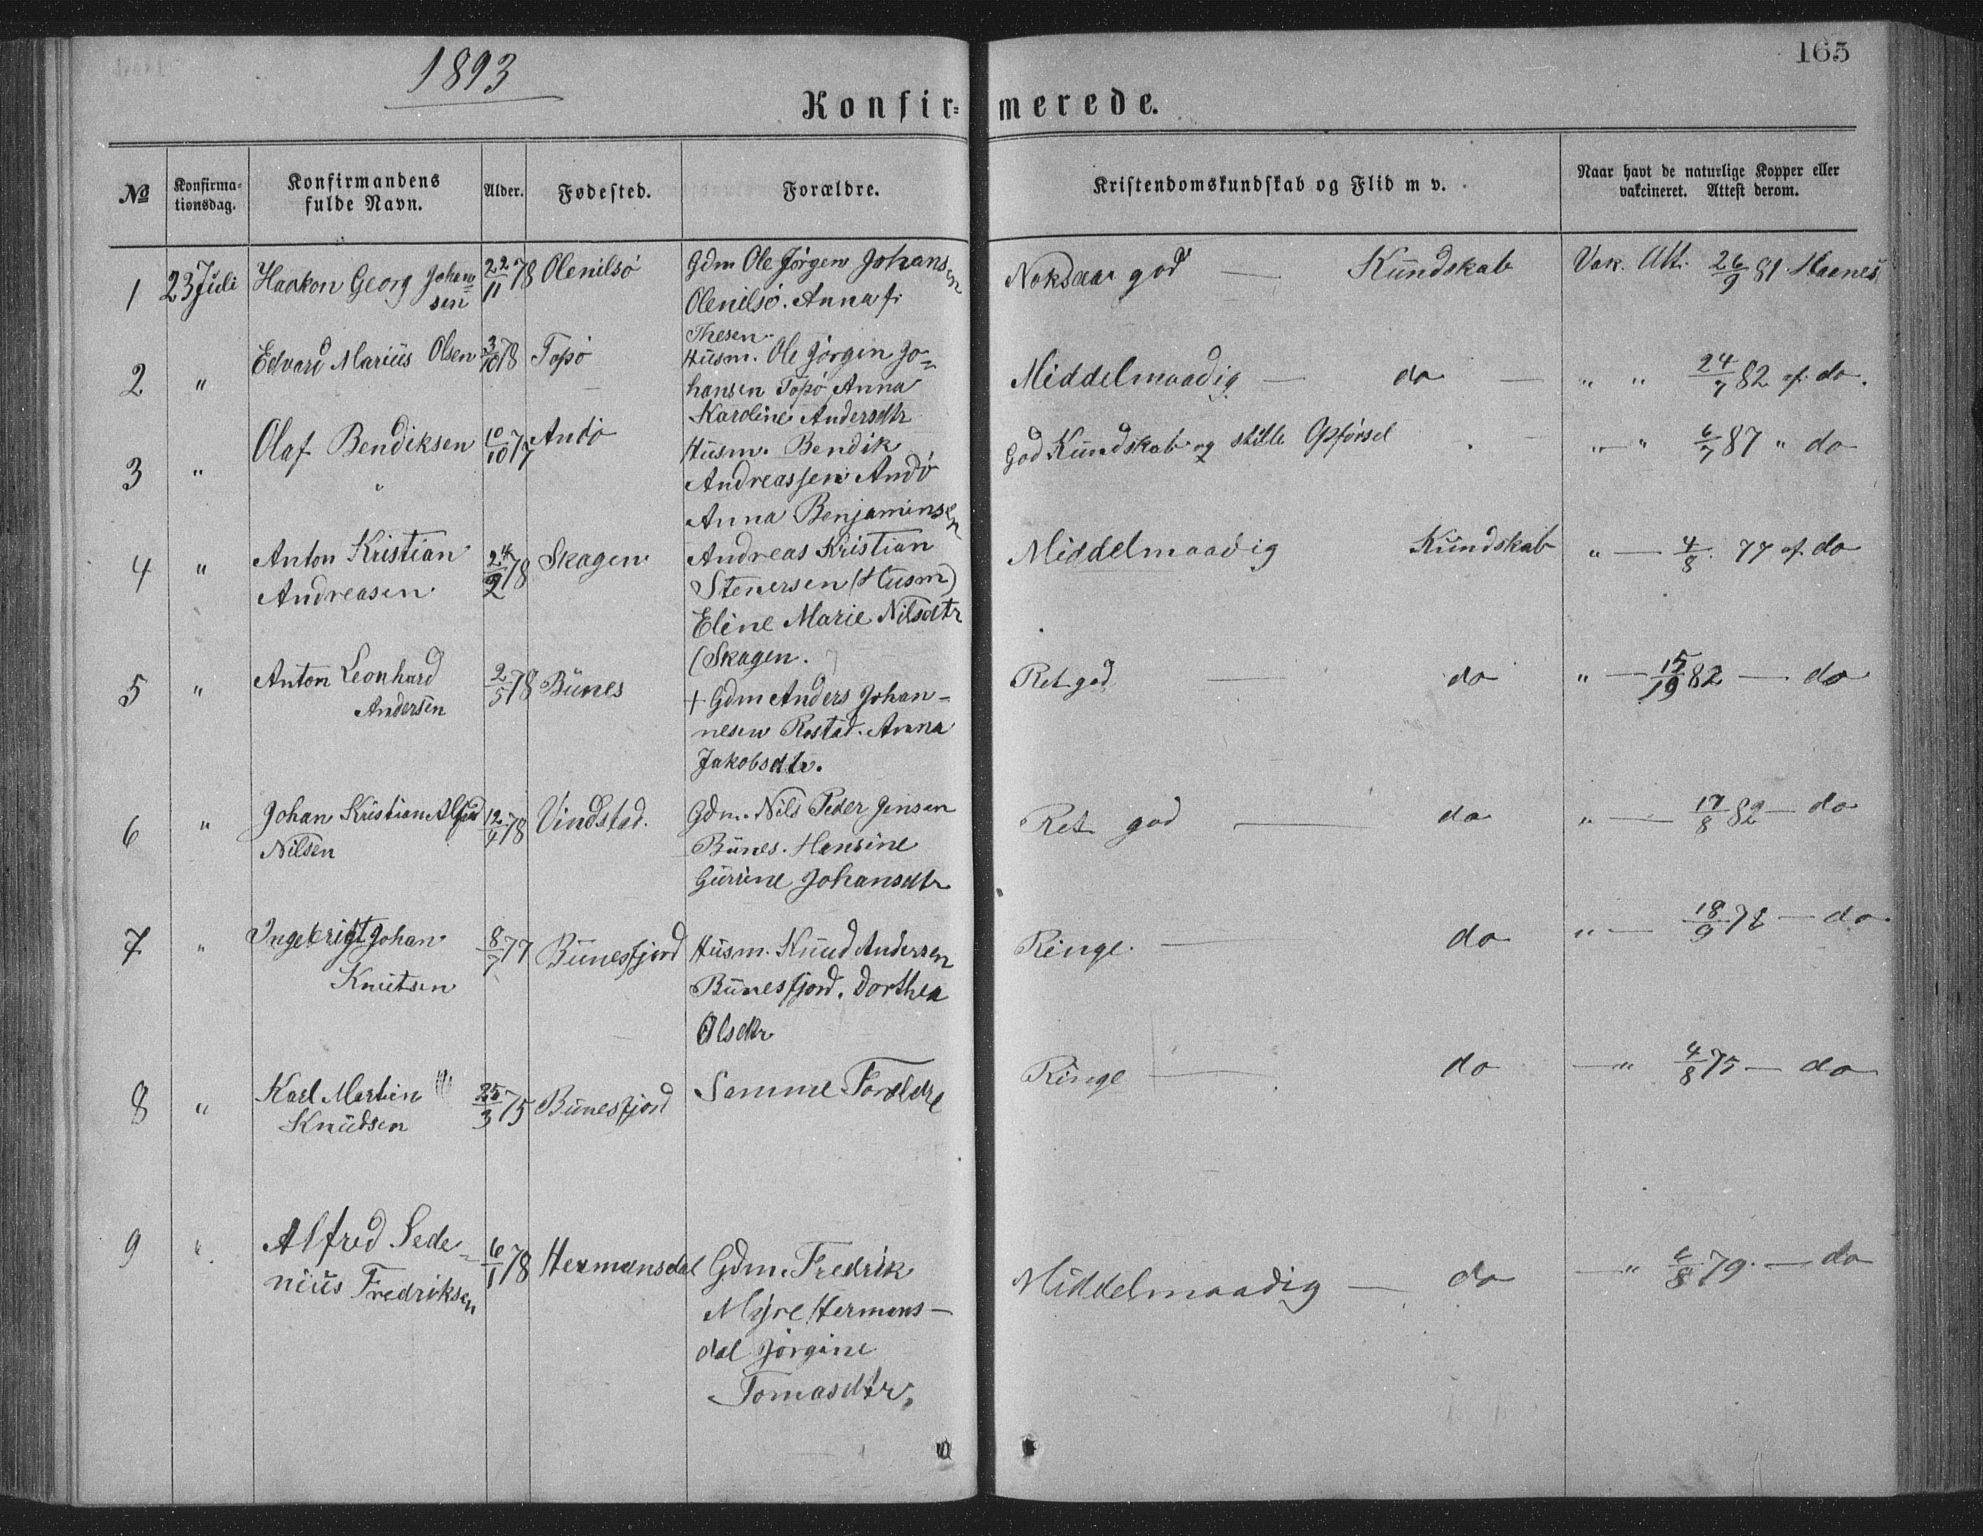 1893
165
Konfir= merede.
№ Konfirma- tionsdag. Konfirmandens fulde Navn. Alder. Fødested. Forældre. Kristendomskundskab og Flid m v. Naar havt de naturlige Kopper eller vakcineret. Attest derom.
1 23 Juli Haakon Georg Johan= 22/11 78 Olenilsö Gdm Ole Jörgen Johansen Noksaa god — Kundskab Vak. Att. 26/9 81
sen Olenilsö. Anna
Thesen.
2 " Edvard Marius Olsen 3/10 78 Topö Husm. Ole Jörgen Jo= Middelmaadig — do — " " 24/7 82 af do.
hansen Topö Anna
Karoline Andersdtr
3 " Olaf Bendiksen 10/10 77 Andö Husm. Bendik God Kundskab og stille Opførsel " — " 6/7 87 " do
Andreassen Andö
Anna Benjaminsen
4 " Anton Kristian 24/2 78 Skagen Andreas Kristian Middelmaadig Kundskab " — 4/8 77 af do
Andreasen Stenersen (Husm)
Eline Marie Nilsdtr
(Skagen.
5 " Anton Leonhard 2/5 78 Bünes + Gdm Anders Johan- Ret god — do " — 15/19 82 — do
Andersen nesen Rostad. Anna
Jakobsdtr.
6 " Johan Kristian Alfred 12/4 78 Vindstad. Gdm. Nils Peder Jensen Ret god — do " — 17/8 82 — do
Nilsen Bünes. Hansine
Gurine Johansdtr
7 " Ingebrigt Johan 8/7 77 Bunesfjord Husm. Knud Andersen Ringe. — do " — 18/9 78 — do
Knutsen Bünesfjord. Dorthea
Olsdtr
8 " Karl Martin 25/3 75 Bünesfjord Samme Foreldre Ringe — do — " 4/8 75 — do
Knüdsen
9 " Alfred Sede= 6/1 78 Hermansdal Gdm. Fredrik Middelmaadig — do — " 6/8 79. — do
nius Fredriksen Myre Hermans-
dal Jörgine
Tomasdtr.